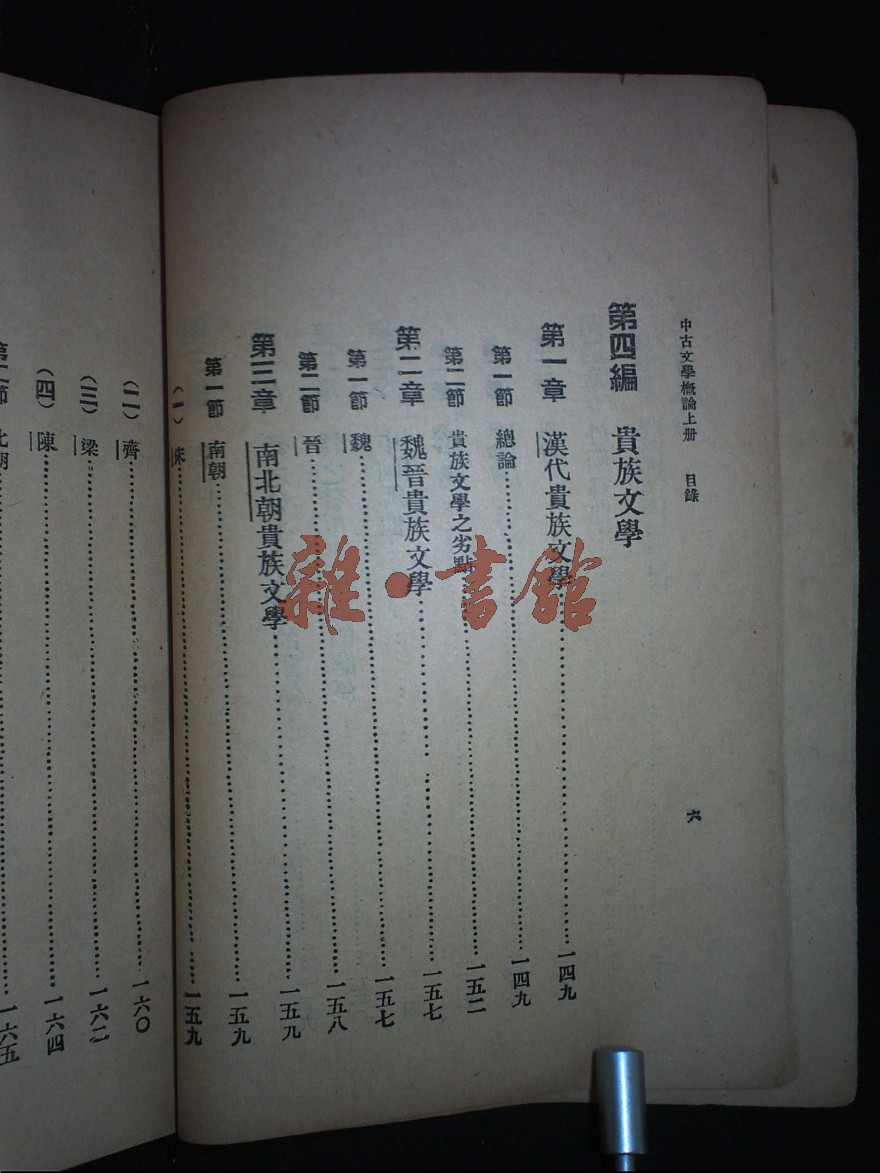 中古文學概論上册 目錄 六
第四編 貴族文學
第一章 漢代貴族文學……一四九
第一節 總論……一四九
第二節 貴族文學之劣點……一五二
第二章 魏晉貴族文學……一五七
第一節 魏……一五七
第二節 晉……一五八
第三章 南北朝貴族文學……一五九
第一節 南朝……一五九
(一) 宋……一五九
(二) 齊……一六〇
(三) 梁……一六二
(四) 陳……一六四
第二節 北朝……一六五
雜·書館